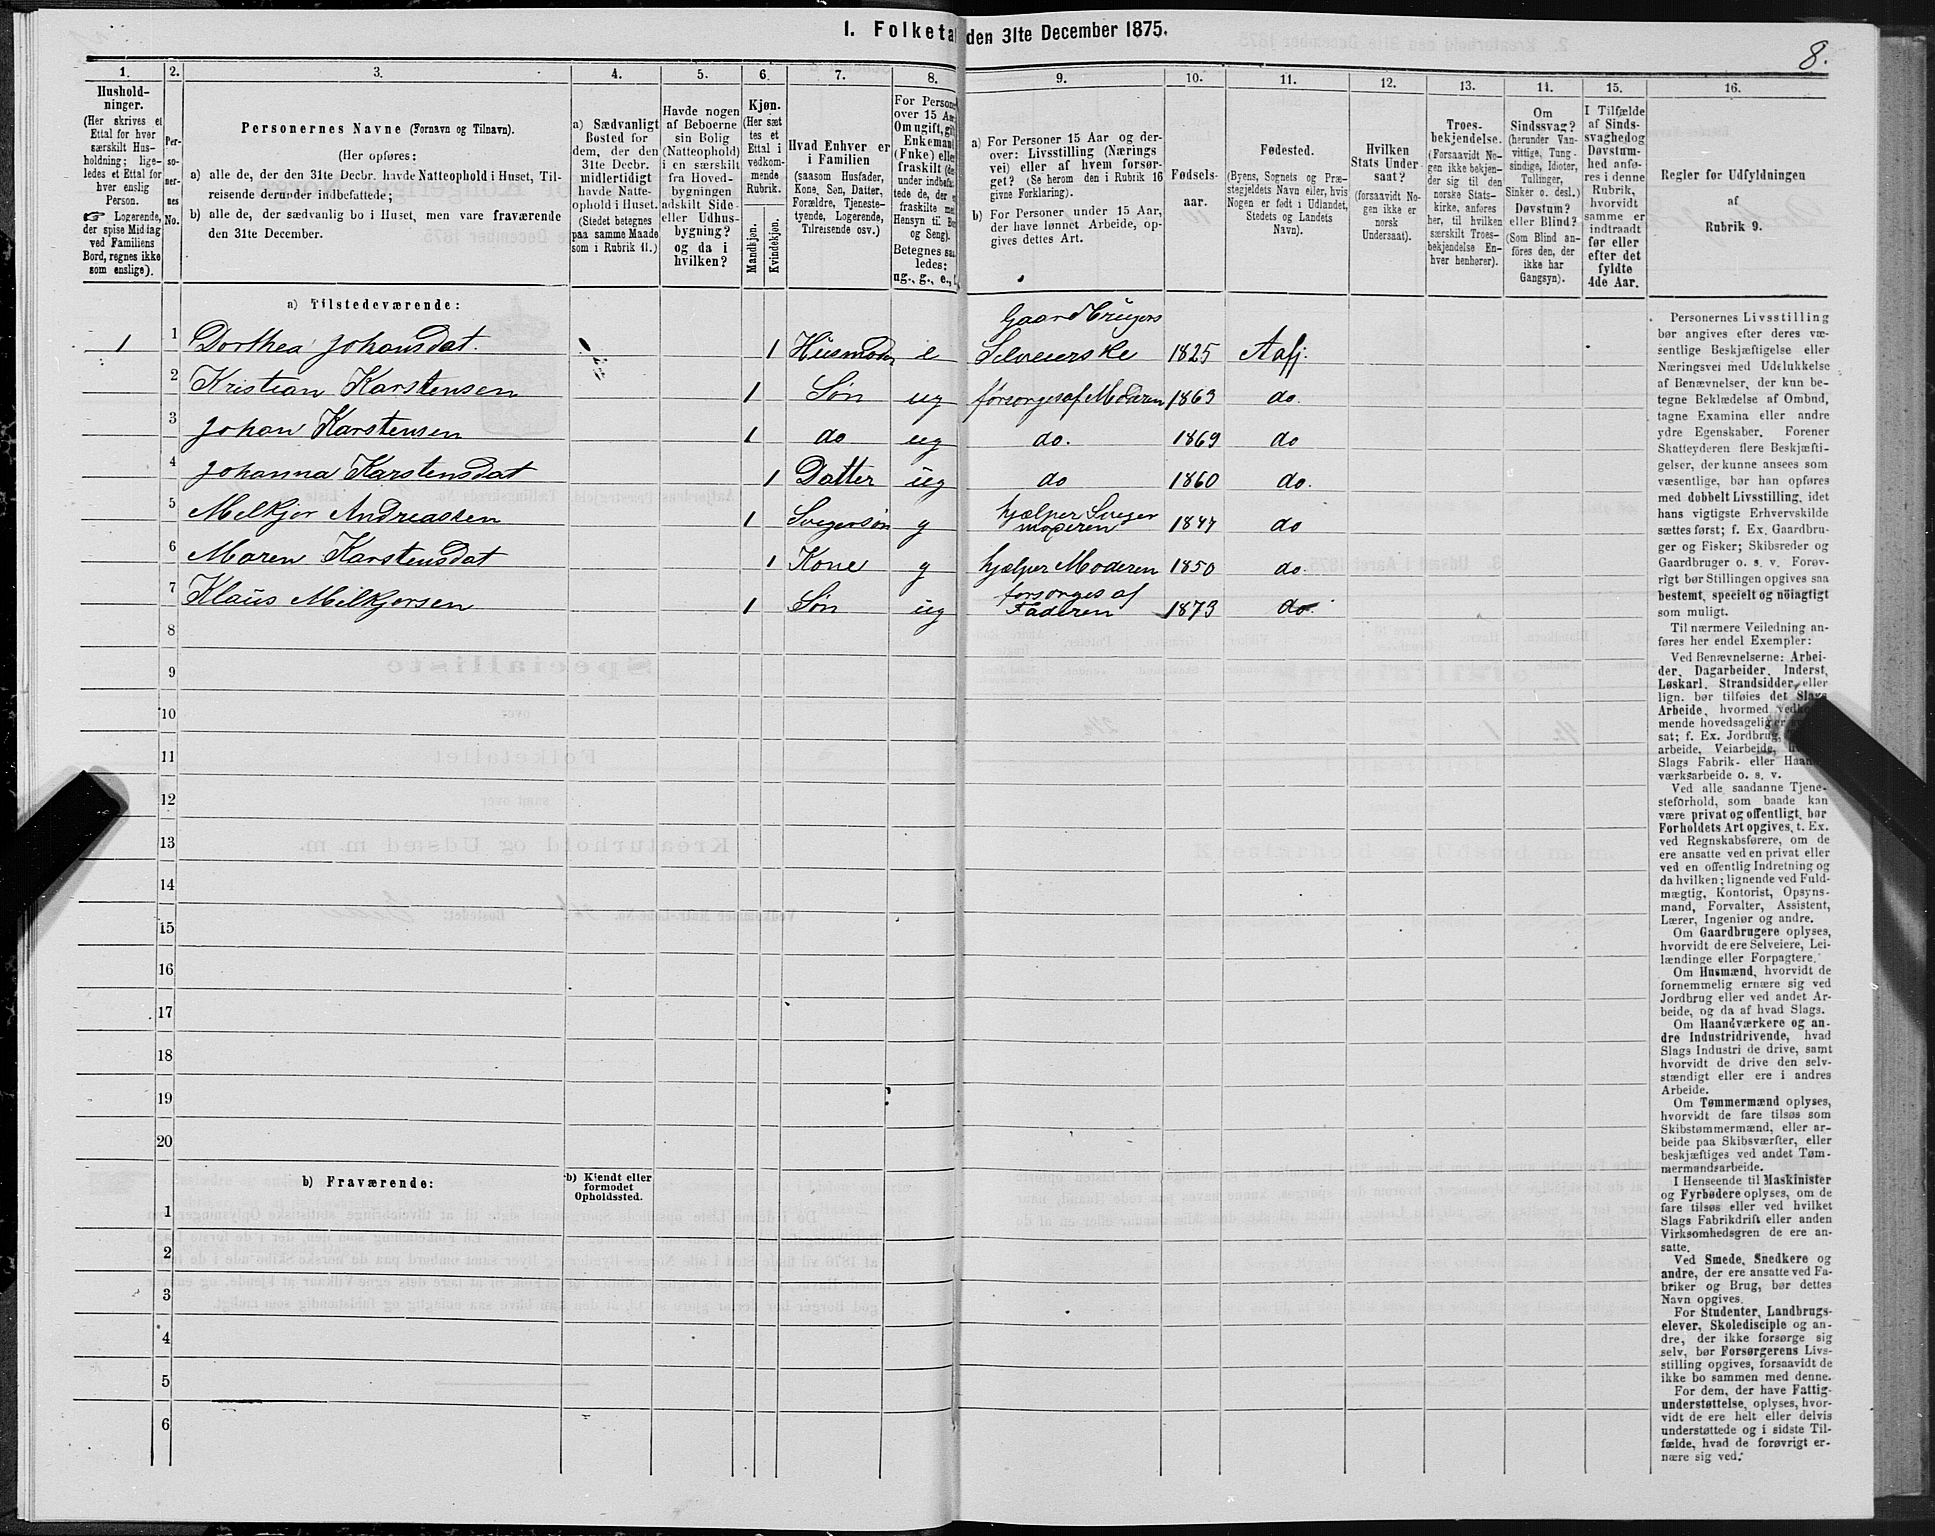 1. Folketa den 31te December 1875.
8.
1. 2. 3. 4. 5. 6. 7. 8. 9. 10. 11. 12. 13. 14. 15. 16.
Hushold-
ninger.
(Her skrives et
Ettal for hver
særskilt Hus-
holdning; lige-
ledes et Ettal for
hver enslig
Person.
☞ Logerende,
der spise Middag
ved Familiens
Bord, regnes ikke
som enslige).
Per-
so-
ner-
nes
No.
Personernes Navne (Fornavn og Tilnavn).
(Her opføres:
a) alle de, der den 31te Decbr. havde Natteophold i Huset, Til-
reisende derunder indbefattede;
b) alle de, der sædvanlig bo i Huset, men vare fraværende
den 31te December.
a) Sædvanligt
Bosted for
dem, der den
31te Decbr.
midlertidigt
havde Natte-
ophold i Huset.
(Stedet betegnes
paa samme Maade
som i Rubrik 11.)
Havde nogen
af Beboerne
sin Bolig
(Natteophold)
i en særskilt
fra Hoved-
bygningen
adskilt Side-
eller Udhus-
bygning?
og da i
hvilken?
Kjøn.
(Her sæt-
tes et
Ettal i
vedkom-
mende
Rubrik.
Mandkjøn.
Kvindekjøn.
Hvad Enhver er
i Familien
(saasom Husfader,
Kone, Søn, Datter,
Forældre, Tjeneste-
tyende, Logerende,
Tilreisende osv.)
For Person
over 15 Aar
Om ugift, gi
Enkemand
(Enke) elle
fraskilt (de
under indbefa
tede de, der e
fraskilte m
Hensyn til Bo
og Seng).
Betegnes saa
ledes:
ug., g., e.,
a) For Personer 15 Aar og der-
over: Livsstilling (Nærings
vei) eller af hvem forsør-
get? (Se herom den i Rubrik 16
givne Forklaring).
b) For Personer under 15 Aar,
der have lønnet Arbeide, op-
gives dettes Art.
Fødsels-
aar.
Fødested.
(Byens, Sognets og Præ-
stegjeldets Navn eller, hvis
Nogen er født i Udlandet,
Stedets og Landets
Navn).
Hvilken
Stats Under-
saat?
(forsaavidt No-
gen ikke er
norsk
Undersaat).
Troes-
bekjendelse.
(Forsaavidt No-
gen ikke bekjen-
der sig til den
norske Stats-
kirke, anføres
her, til hvilken
særskilt Troes-
bekjendelse En-
hver henhører).
Om
Sindssvag?
(herunder Van-
vittige, Tung-
sindige, Idioter,
Tullinger,
Sinker o. desl.)
Døvstum?
eller Blind?
(Som Blind an-
føres den, der
ikke har
Gangsyn).
I Tilfælde
af Sinds-
svaghed og
Døvstum-
hed anfø-
res i denne
Rubrik,
hvorvidt
samme er
indtraadt
før eller
efter det
fyldte
4de Aar.
Regler for Udfyldningen
af
Rubrik 9.
a) Tilstedeværende:
1 1 Dorthea Johansdat. 1 Husmoder e Gaardbrugers Selveierske 1825 Aafj.
2 Kristian Karstensen 1 Søn ug forsørges af Moderen 1863 do.
3 Johan Karstensen 1 do ug do. 1869 do
4 Johanna Karstensdat 1 Datter ug do 1860 do.
5 Melkjer Andreassen 1 Svigersøn g hjælper Sviger moderen 1847 do
6 Maren Karstensdat 1 Kone g hjælper Moderen 1850 do.
7 Klaus Milkjersen 1 Søn ug forsørges af Faderen 1873 do.
8
9
10
11
12
13
14
15
16
17
18
19
20
b) Fraværende:
b) Kjendt eller
formodet
Opholdssted.
1
2
3
4
5
6
Personernes Livsstilling
bør angives efter deres væ-
sentlige Beskjæftigelse eller
Næringsvei med Udelukkelse
af Benævnelser, der kun be-
tegne Beklædelse af Ombud,
tagne Examina eller andre
ydre Egenskaber. Forener
Skatteyderen flere Beskjæfti-
gelser, der kunne ansees som
væsentlige, bør han opføres
med dobbelt Livsstilling, idet
hans vigtigste Erhvervskilde
sættes først; f. Ex. Gaardbru-
ger og Fisker; Skibsreder og
Gaardbruger o. s. v. Forøv-
rigt bør Stillingen opgives saa
bestemt, specielt og nöiagtigt
som muligt.
Til nærmere Veiledning an-
føres her endel Exempler:
Ved Benævnelserne: Arbei-
der, Dagarbeider, Inderst,
Løskarl, Strandsidder, eller
lign. bør tilføies det Slags
Arbeide, hvormed vedkom-
mende hovedsagelig er
sat; f. Ex. Jordbrug,
arbeide, Veiarbeide,
Slags Fabrik- eller Haand-
værksarbeide o. s. v.
Ved alle saadanne Tjene-
steforhold, som baade kan
være privat og offentligt, bør
Forholdets Art opgives, t. Ex.
ved Regnskabsførere, om de
ere ansatte ved en privat eller
ved en offentlig Indretning og
da hvilken; lignende ved Fuld-
mægtig, Kontorist, Opsyns-
mand, Forvalter, Assistent,
Lærer, Ingeniør og andre.
Om Gaardbrugere oplyses,
hvorvidt de ere Selveiere, Lei-
lændinge eller Forpagtere.
Om Husmænd, hvorvidt de
fornemmelig ernære sig ved
Jordbrug eller ved andet Ar-
beide, og da af hvad Slags.
Om Haandværkere og an-
dre Industridrivende, hvad
Slags Industri de drive, samt
hvorvidt de drive den selv-
stændigt eller ere i andres
Arbeide.
Om Tømmermænd oplyses,
hvorvidt de fare tilsøs som
Skibstømmermænd, eller ar-
beide paa Skibsværfter, eller
beskjæftiges ved andet Tøm-
mermandsarbeide.
I Henseende til Maskinister
og Fyrbødere oplyses, om de
fare tilsøs eller ved hvilket
Slags Fabrikdrift eller anden
Virksomhedsgren de ere an-
satte.
Ved Smede, Snedkere og
andre, der ere ansatte ved Fa-
briker og Brug, bør dettes
Navn opgives.
For Studenter, Landbrugs-
elever, Skoledisciple og an-
dre, der ikke forsørge sig
selv, bør Forsørgerens Livs-
stilling opgives, forsaavidt de
ikke bo sammen med denne.
For dem, der have Fattig-
understøttelse, oplyses, hvor-
vidt de ere helt eller delvis
understøttede og i sidste Til-
fælde, hvad de forøvrigt er-
nære sig ved.